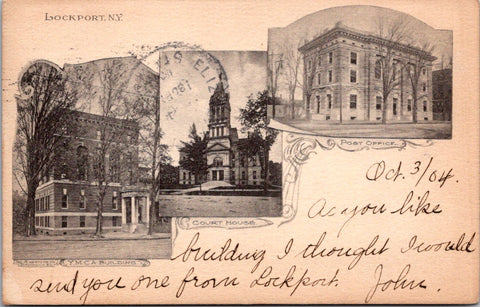 LOCKPORT, N.Y.
POST OFFICE
COURT HOUSE
Y.M.C.A BUILDING
Oct. 3/04.
As you like
building I thought I would
send you one from Lockport. John.